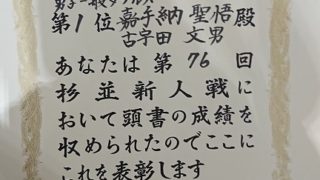 男子一般ダブルス
第1位 嘉手納 聖悟 殿
古宇田 文男
あなたは第76回
杉並新人戦に
おいて頭書の成績を
収められたのでここに
これを表彰します